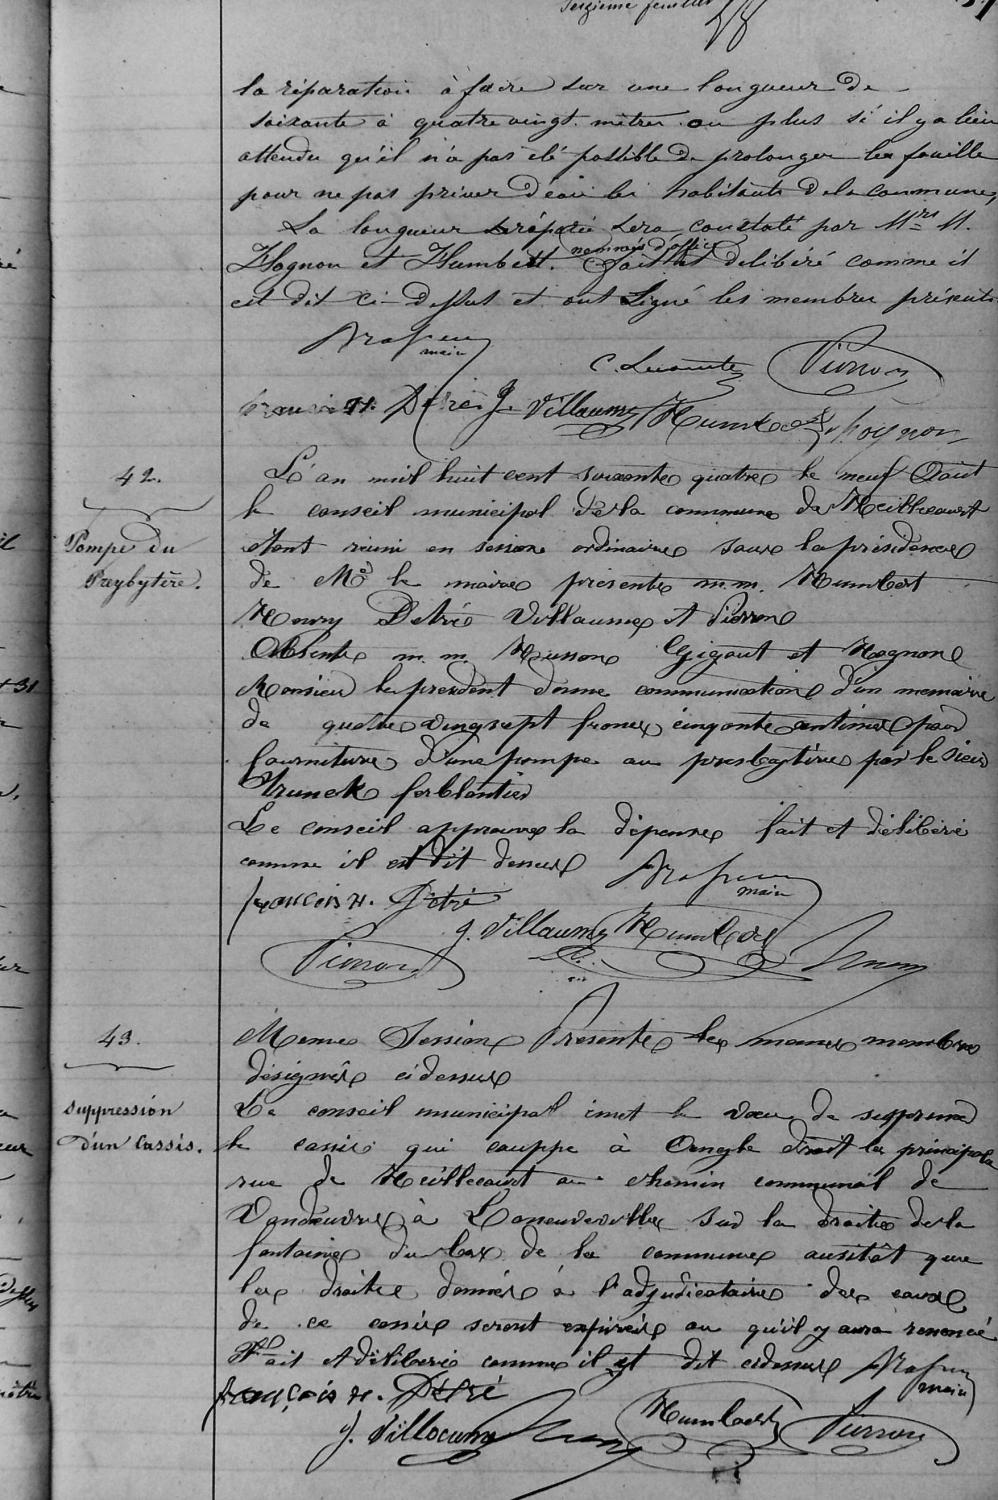 Seizième feuillet
la réparation à faire sur une longueur de
soixante à quatre vingt mètres ou plus si il y a lieu
attendu qu'il n'a pas été possible de prolonger les fouille
pour ne pas priver d'eau les habitants de la commune,
La longueur réparée sera constaté par Mrs M.
nommés d'office
Hognon et Humbert. fait et délibéré comme il
est dit ci-dessus et ont signé les membres présents
maire
C. Lecomte Pierron
françois H. Détré J. Villaume Humbert hognon
42.
Pompe du
Presbytère.
L'an mil huit cent soixante quatre le neuf Aout
le conseil municipal de la commune de Heillecourt
étant réuni en session ordinaire sous la présidence
de Mr le maire présents m.m. Humbert
Henry Detré Villaume et Pierron
Absents m.m. Husson Gigout et Hognon
Monsieur le president donne communication d'un memoire
de quatre vingsept francs cinquante centimes pour
fourniture d'une pompe au presbytère par le sieur
ferblantier
Le conseil approuve la dépense fait et délibéré
comme il est dit dessus
maire
françois H. Détré
J. Villaume Humbert
Pierron
43.
Suppression
d'un Cassis.
Meme Session Presents les memes membres
désignés cidessus
Le conseil municipal émet le voeu de supprimer
le cassis qui couppe à Angle droit la principale
rue de Heillecourt au chemin communal de
Vandeuvre à Laneuveville sur la droite de la
fontaine du bas de la commune ausitôt que
les droits donnés à l'adjudicataire des eaux
de ce cassis seront expirés ou qu'il y aura renoncé
Fait et délibéré comme il est dit cidessus
maire
françois H. Détré
J. Villaume Humbert Pierron